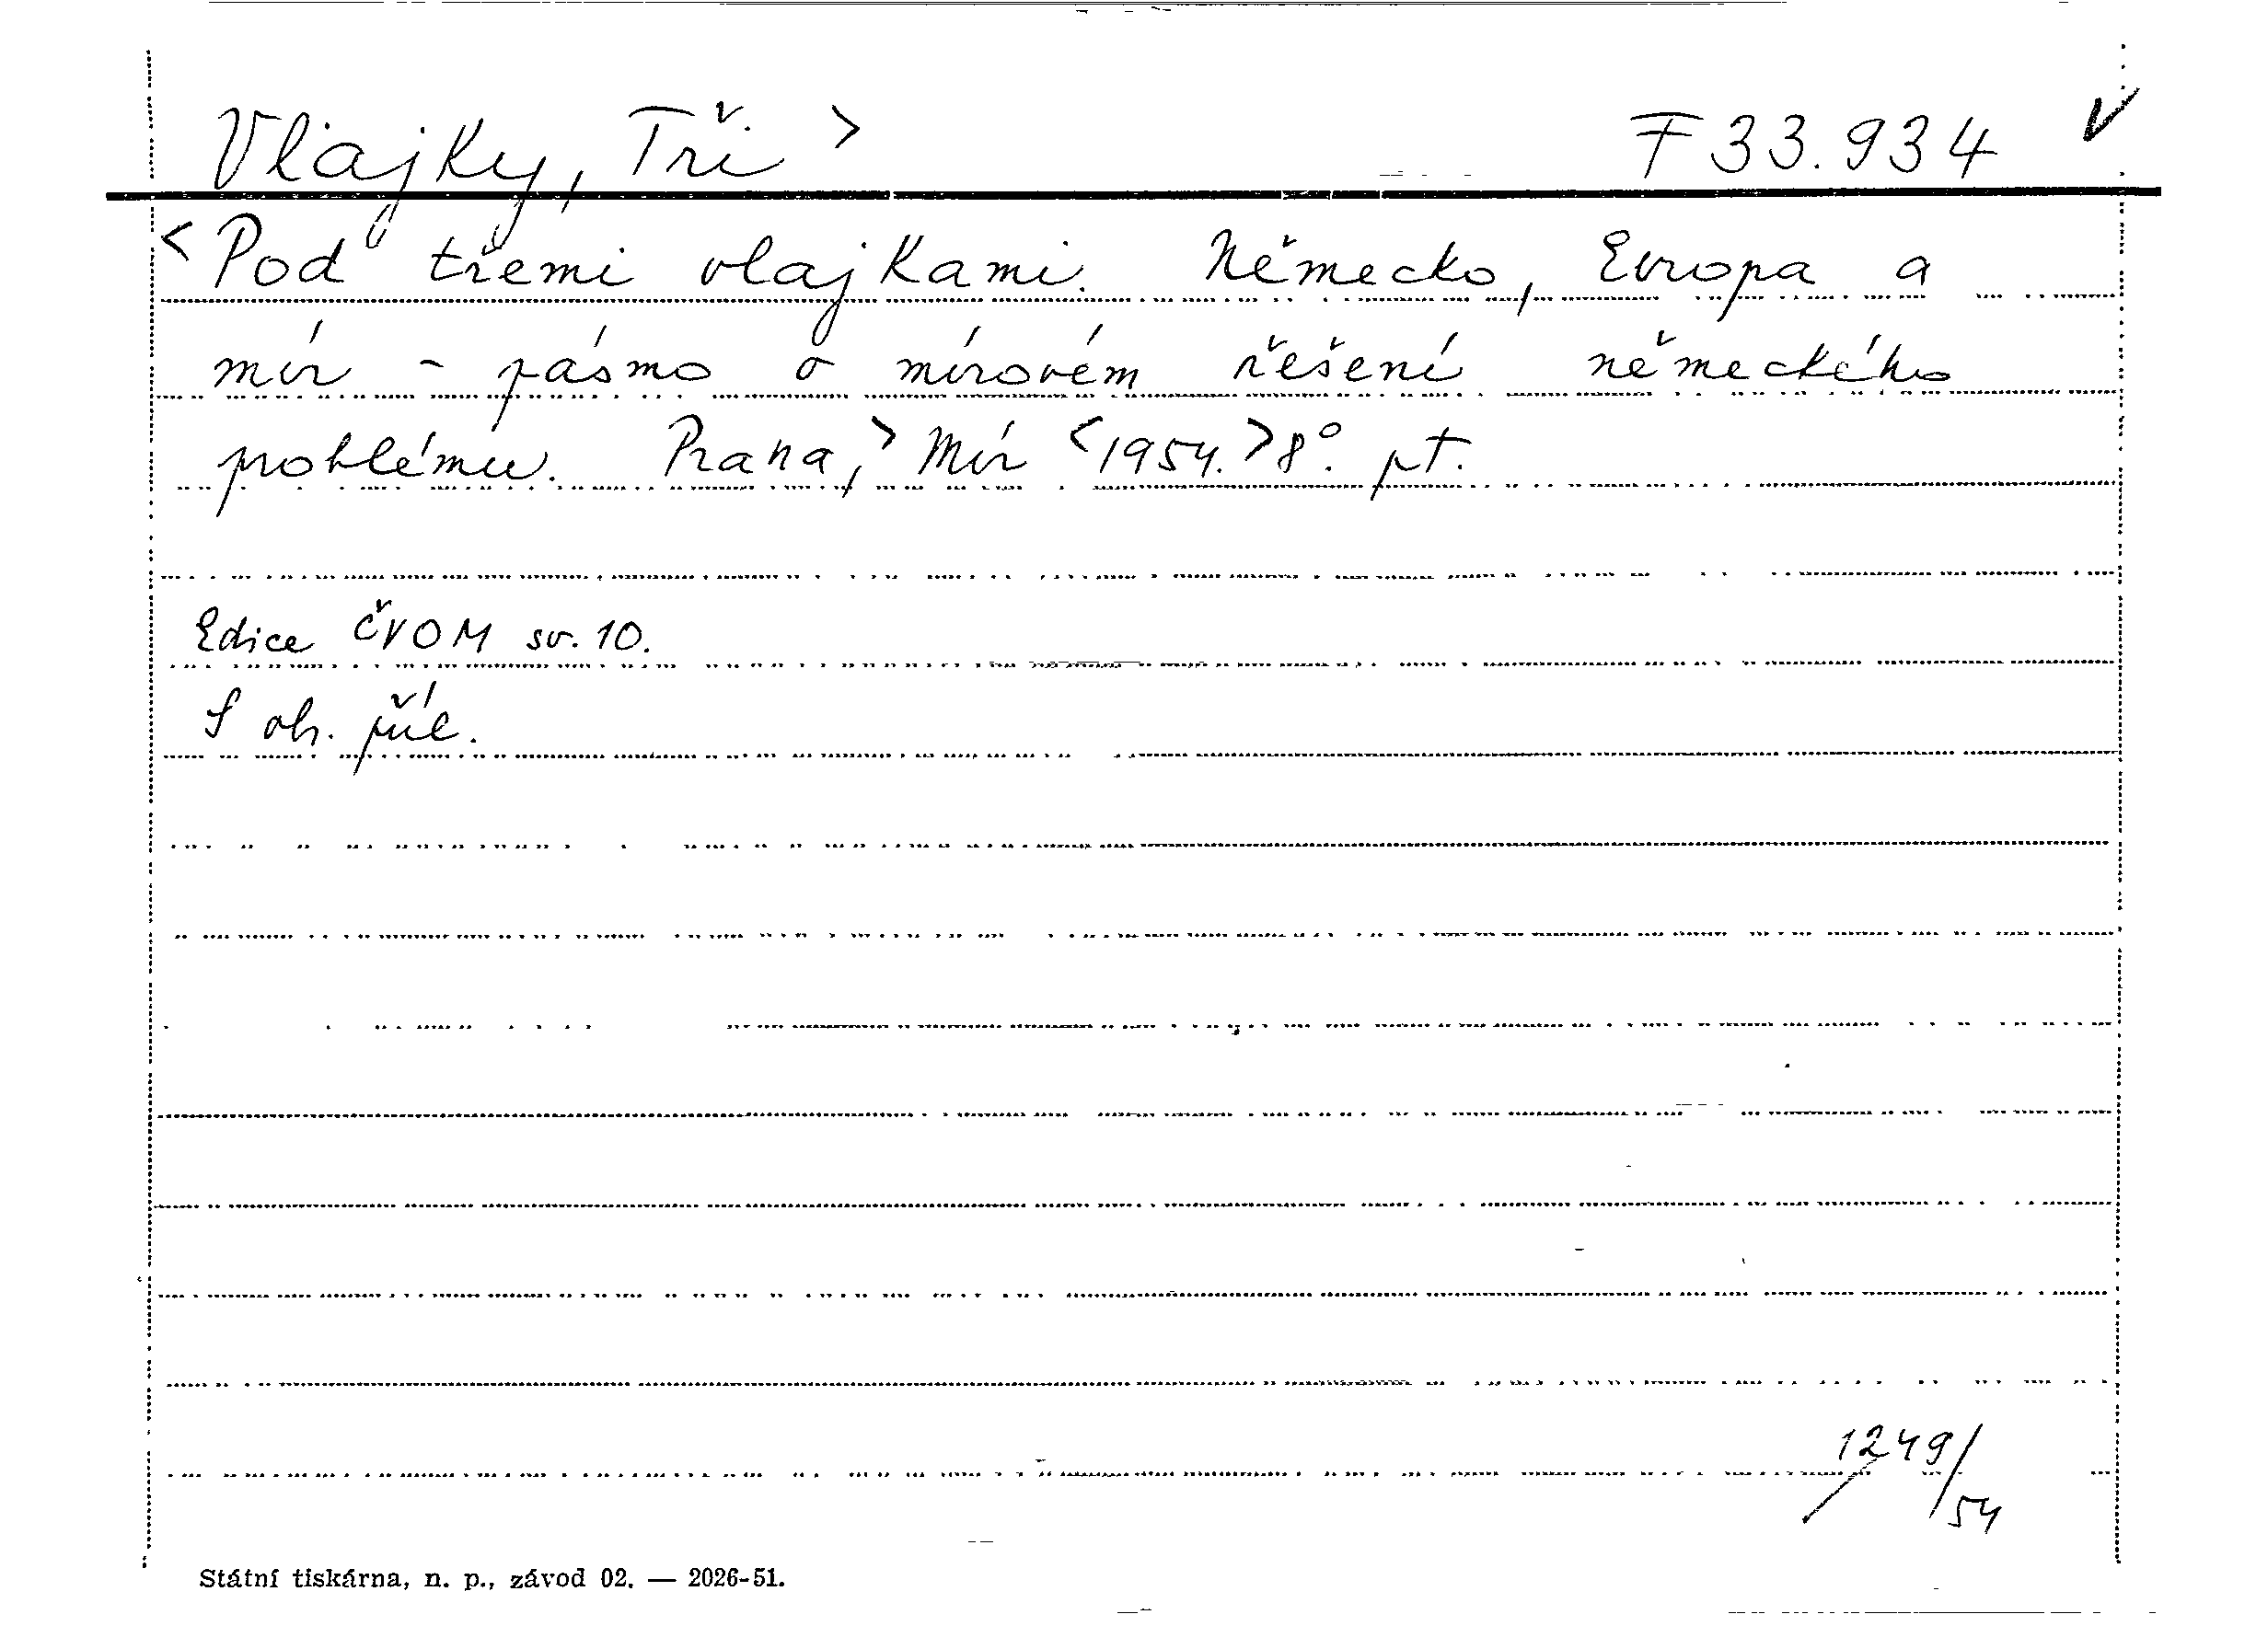 Vlajky, Tři > F 33.934 V
<Pod třemi vlajkami. Německo, Evropa a
mír - pásmo o mírovém řešení německého
problému. Praha,> Mír <1954.> 8°. pt.
Edice ČVOM sv. 10.
S ob. příl.
1249/54
Státní tiskárna, n. p., závod 02. — 2026-51.